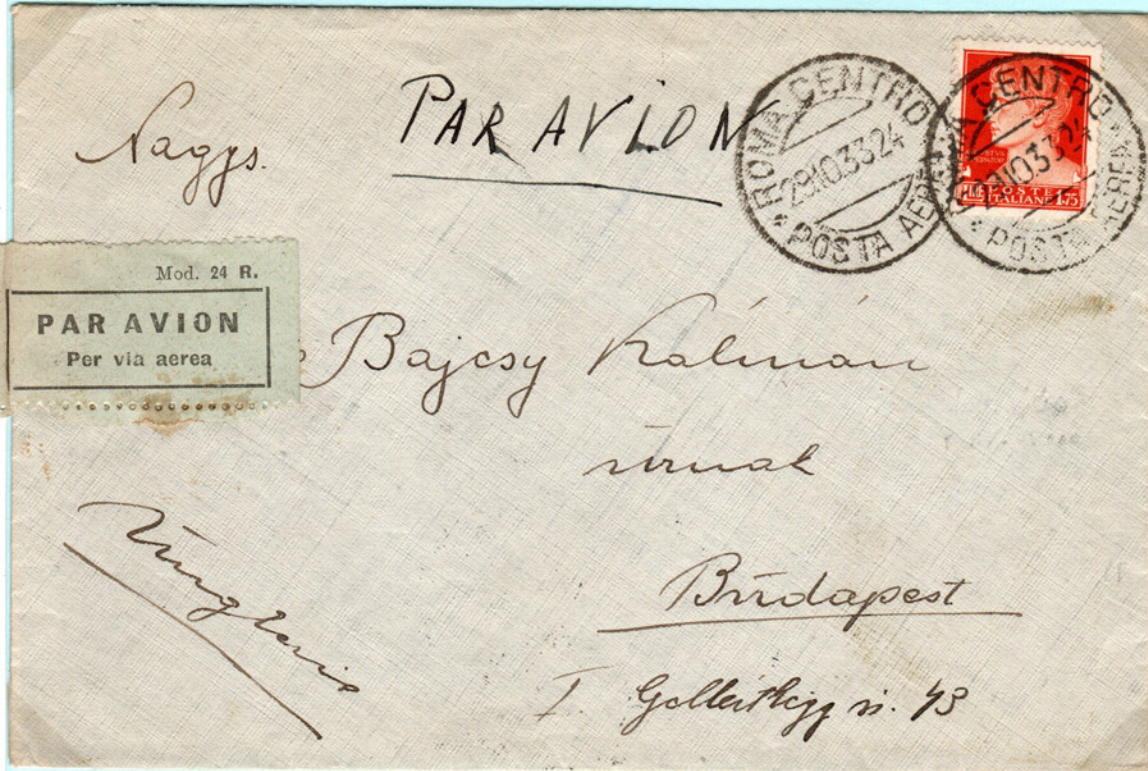 Nagys.
PAR AVION
ROMA CENTRO
29.10.33 24
* POSTA AEREA
ROMA CENTRO
29.10.33 24
* POSTA AEREA
LIRE POSTE ITALIANE 1.75
Mod. 24 R.
PAR AVION
Per via aerea
Bajcsy Kálmán
úrnak
Ungheria
Budapest
I. Gellérthegy u. 43